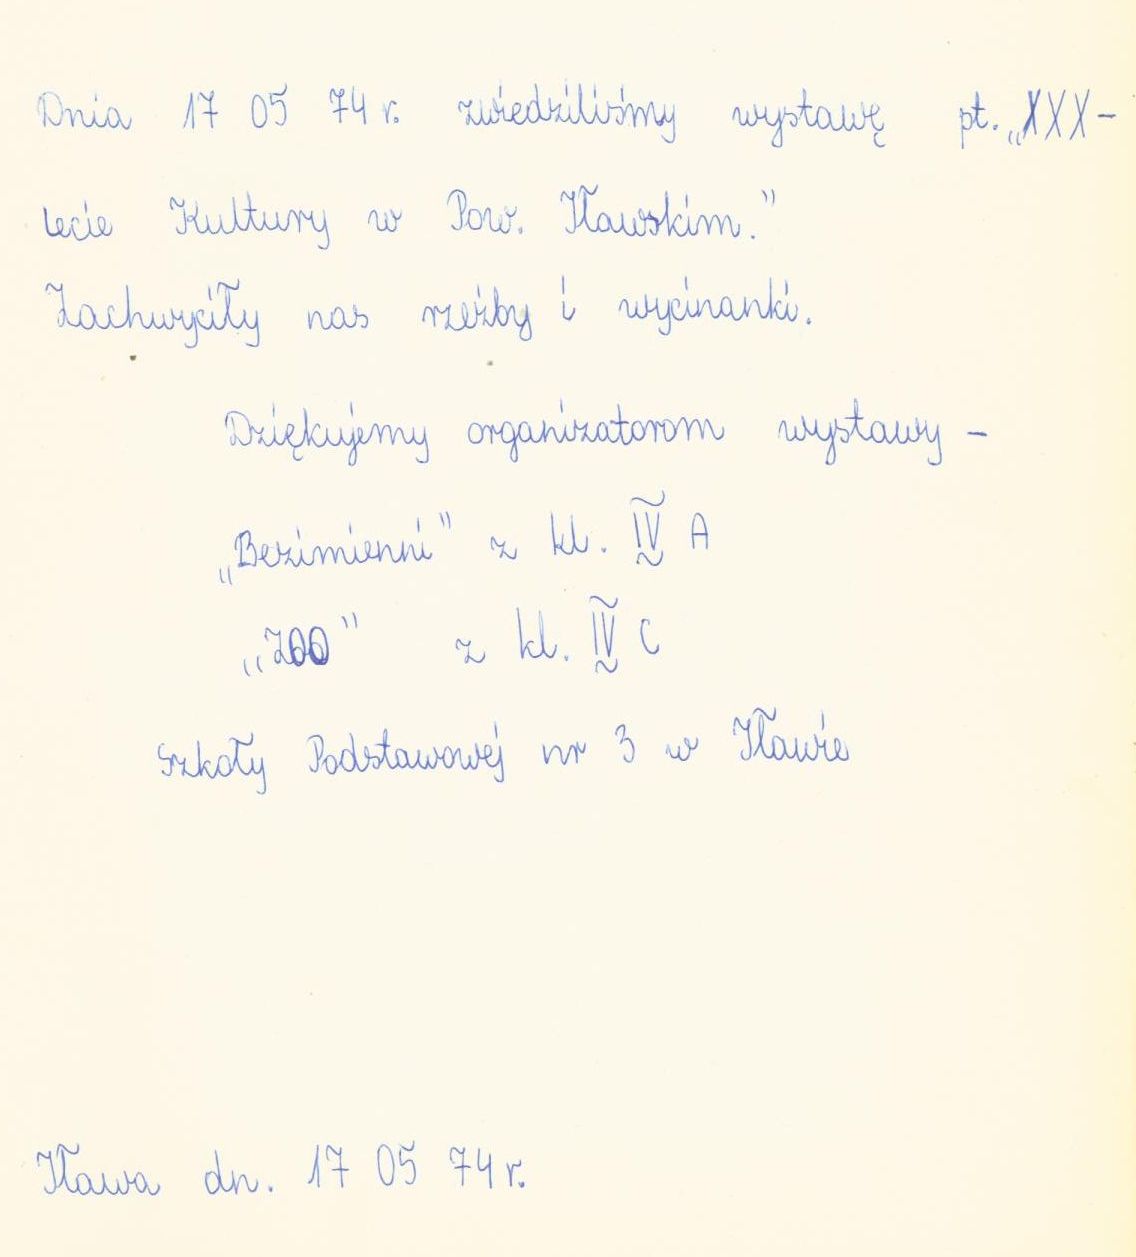 Dnia 17 05 74 r. zwiedziliśmy wystawę pt. „XXX-
lecie Kultury w Pow. Iławskim."
Zachwyciły nas rzeźby i wycinanki.
Dziękujemy organizatorom wystawy -
„Bezimienni" z kl. IV A
„ZOO" z kl. IV C
Szkoły Podstawowej nr 3 w Iławie
Iława dn. 17 05 74 r.